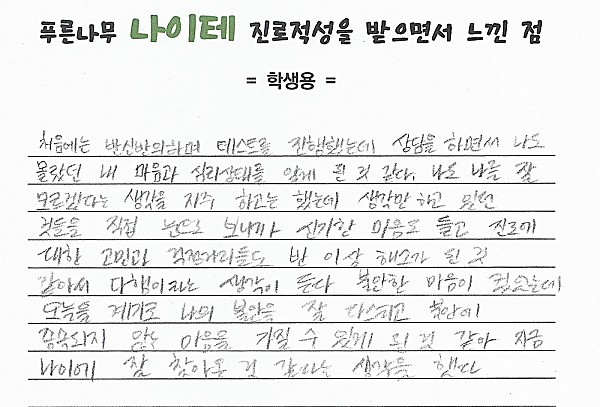 푸른나무 나이테 진로적성을 받으면서 느낀 점
= 학생용 =
처음에는 반신반의하며 테스트를 진행했는데 상담을 하면서 나도
몰랐던 내 마음과 심리상태를 알게 된 것 같다. 나도 나를 잘
모르겠다는 생각을 자주 하고는 했는데 생각만 하고 있던
것들을 직접 눈으로 보니까 신기한 마음도 들고 진로에
대한 고민과 걱정거리들도 반 이상 해소가 된 것
같아서 다행이라는 생각이 든다 불안한 마음이 컸었는데
오늘을 계기로 나의 불안을 잘 다스리고 불안에
잠식되지 않는 마음을 가질 수 있게 된 것 같아 지금
나이에 잘 찾아온 것 같다는 생각을 했다